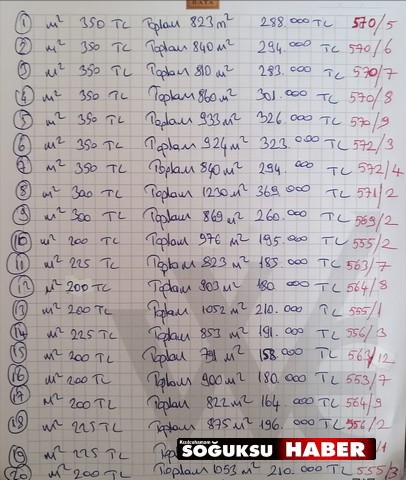 DATA
1 m² 350 TL Toplam 823 m² 288.000 TL 570/5
2 m² 350 TL Toplam 840 m² 294.000 TL 570/6
3 m² 350 TL Toplam 810 m² 283.000 TL 570/7
4 m² 350 TL Toplam 860 m² 301.000 TL 570/8
5 m² 350 TL Toplam 933 m² 326.000 TL 570/9
6 m² 350 TL Toplam 924 m² 323.000 TL 572/3
7 m² 350 TL Toplam 840 m² 294.000 TL 572/4
8 m² 300 TL Toplam 1230 m² 369.000 TL 571/2
9 m² 300 TL Toplam 869 m² 260.000 TL 569/2
10 m² 200 TL Toplam 976 m² 195.000 TL 555/2
11 m² 225 TL Toplam 823 m² 185.000 TL 563/7
12 m² 200 TL Toplam 903 m² 180.000 TL 564/8
13 m² 200 TL Toplam 1052 m² 210.000 TL 555/1
14 m² 225 TL Toplam 853 m² 191.000 TL 556/3
15 m² 200 TL Toplam m² 158.000 TL 563/12
16 m² 200 TL Toplam 900 m² 180.000 TL 553/7
17 m² 200 TL Toplam 822 m² 164.000 TL 564/9
18 m² 225 TL Toplam 875 m² 196.000 TL 556/2
Kızılcahamam
SOĞUKSU HABER
19 m² 225 TL
20 m² 200 TL Toplam 1053 m² 210.000 TL 555/3